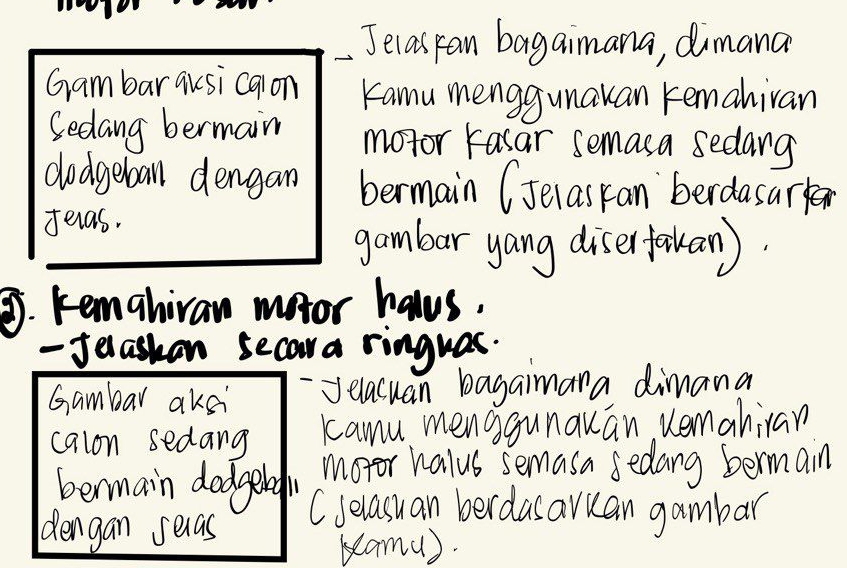 motor kasar.
Gambar aksi calon
sedang bermain
dodgeball dengan
jelas.
- Jelaskan bagaimana, dimana
kamu menggunakan kemahiran
motor kasar semasa sedang
bermain (Jelaskan berdasarkan
gambar yang disertakan).
2. Kemahiran motor halus.
- Jelaskan secara ringkas.
Gambar aksi
calon sedang
bermain dodgeball
dengan jelas
- Jelaskan bagaimana dimana
kamu menggunakan kemahiran
motor halus semasa sedang bermain
(jelaskan berdasarkan gambar
kamu).